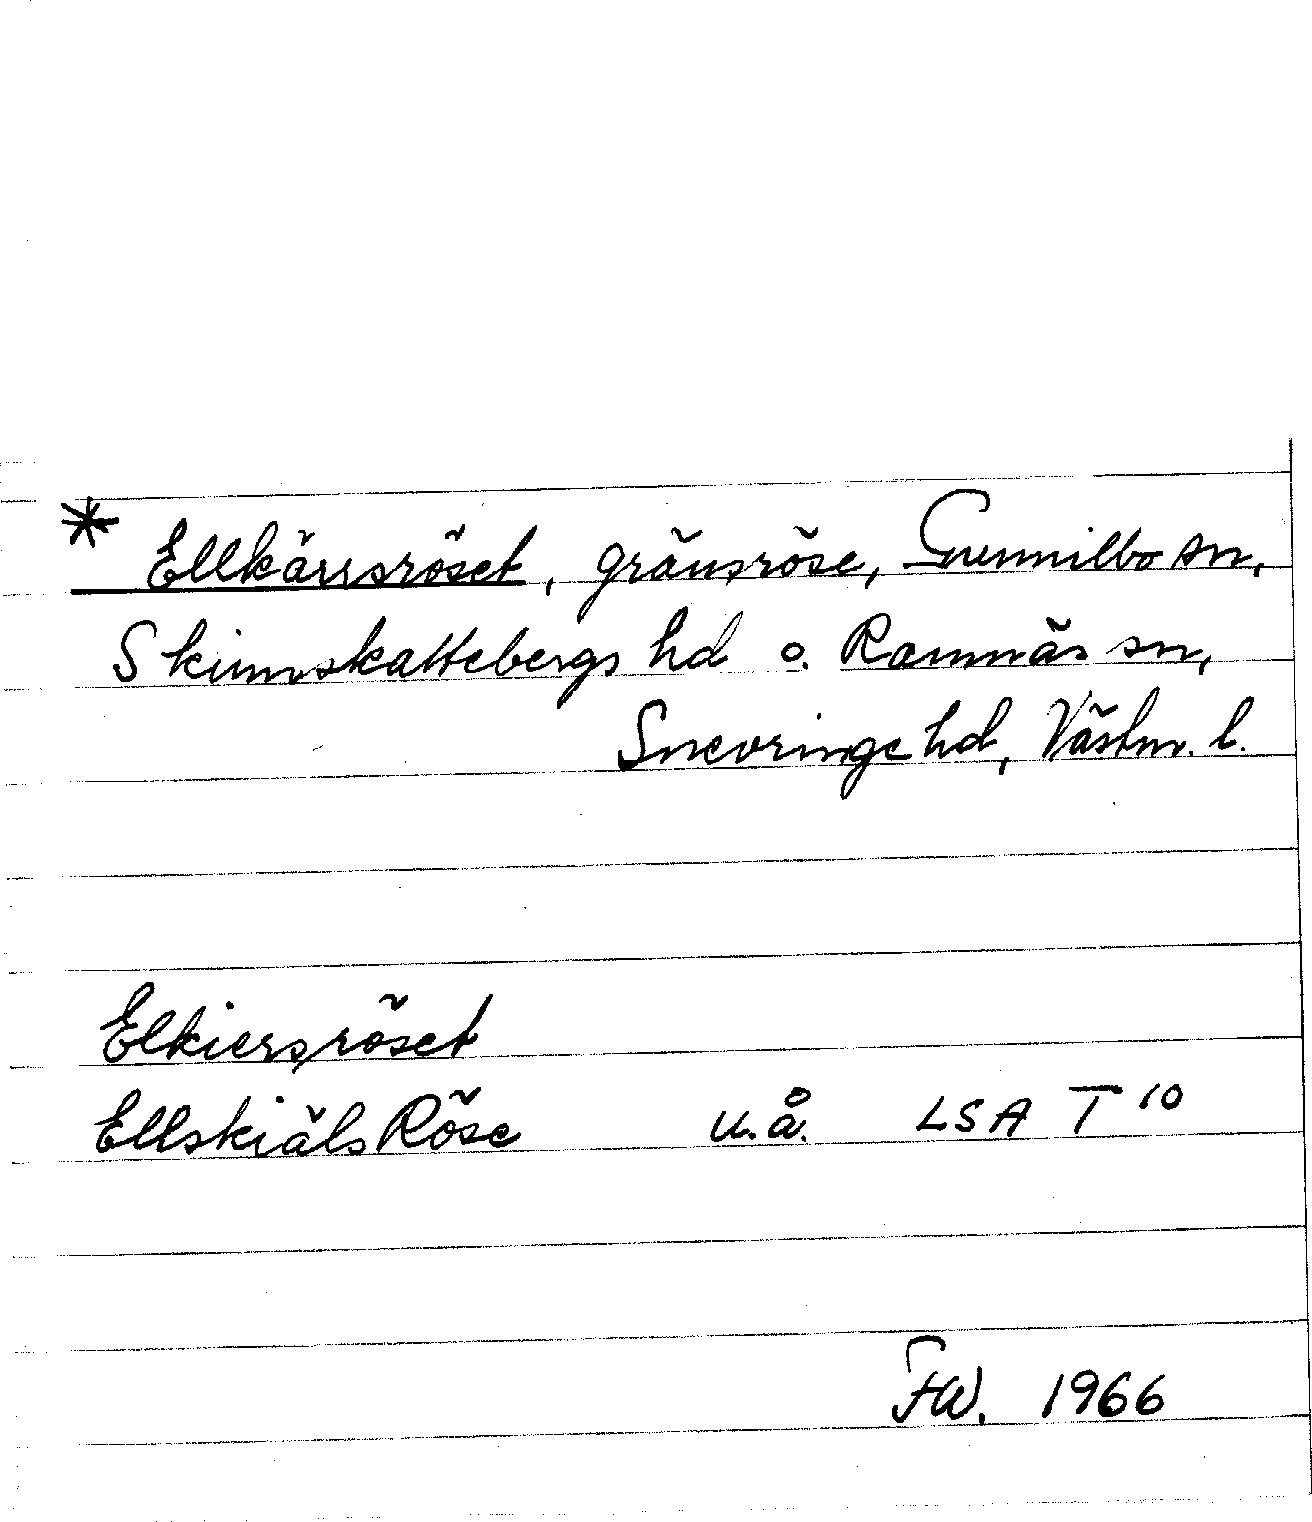 * Ellkärrsröset, gränsröse, Gunnilbo sn,
Skinnskattebergs hd o. Ramnäs sn,
Snevringe hd, Västm. l.
Elkiersröset
Ellskiäls Röse u.å. LSA T 10
FW. 1966